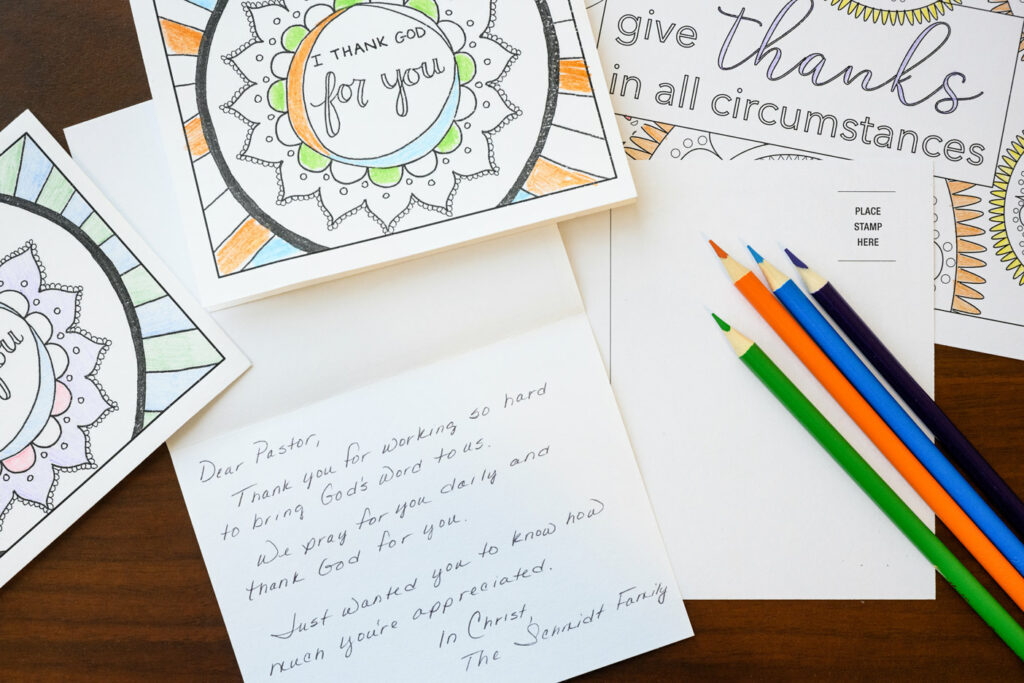 I THANK GOD
for you
give thanks
in all circumstances
PLACE
STAMP
HERE
you
Dear Pastor,
Thank you for working so hard
to bring God's Word to us.
We pray for you daily and
thank God for you.
Just wanted you to know how
much you're appreciated.
In Christ,
The Schmidt Family